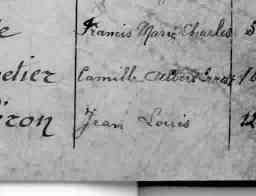 Francis Marie Charles 5
etier Camille Albert
iron Jean Louis 12